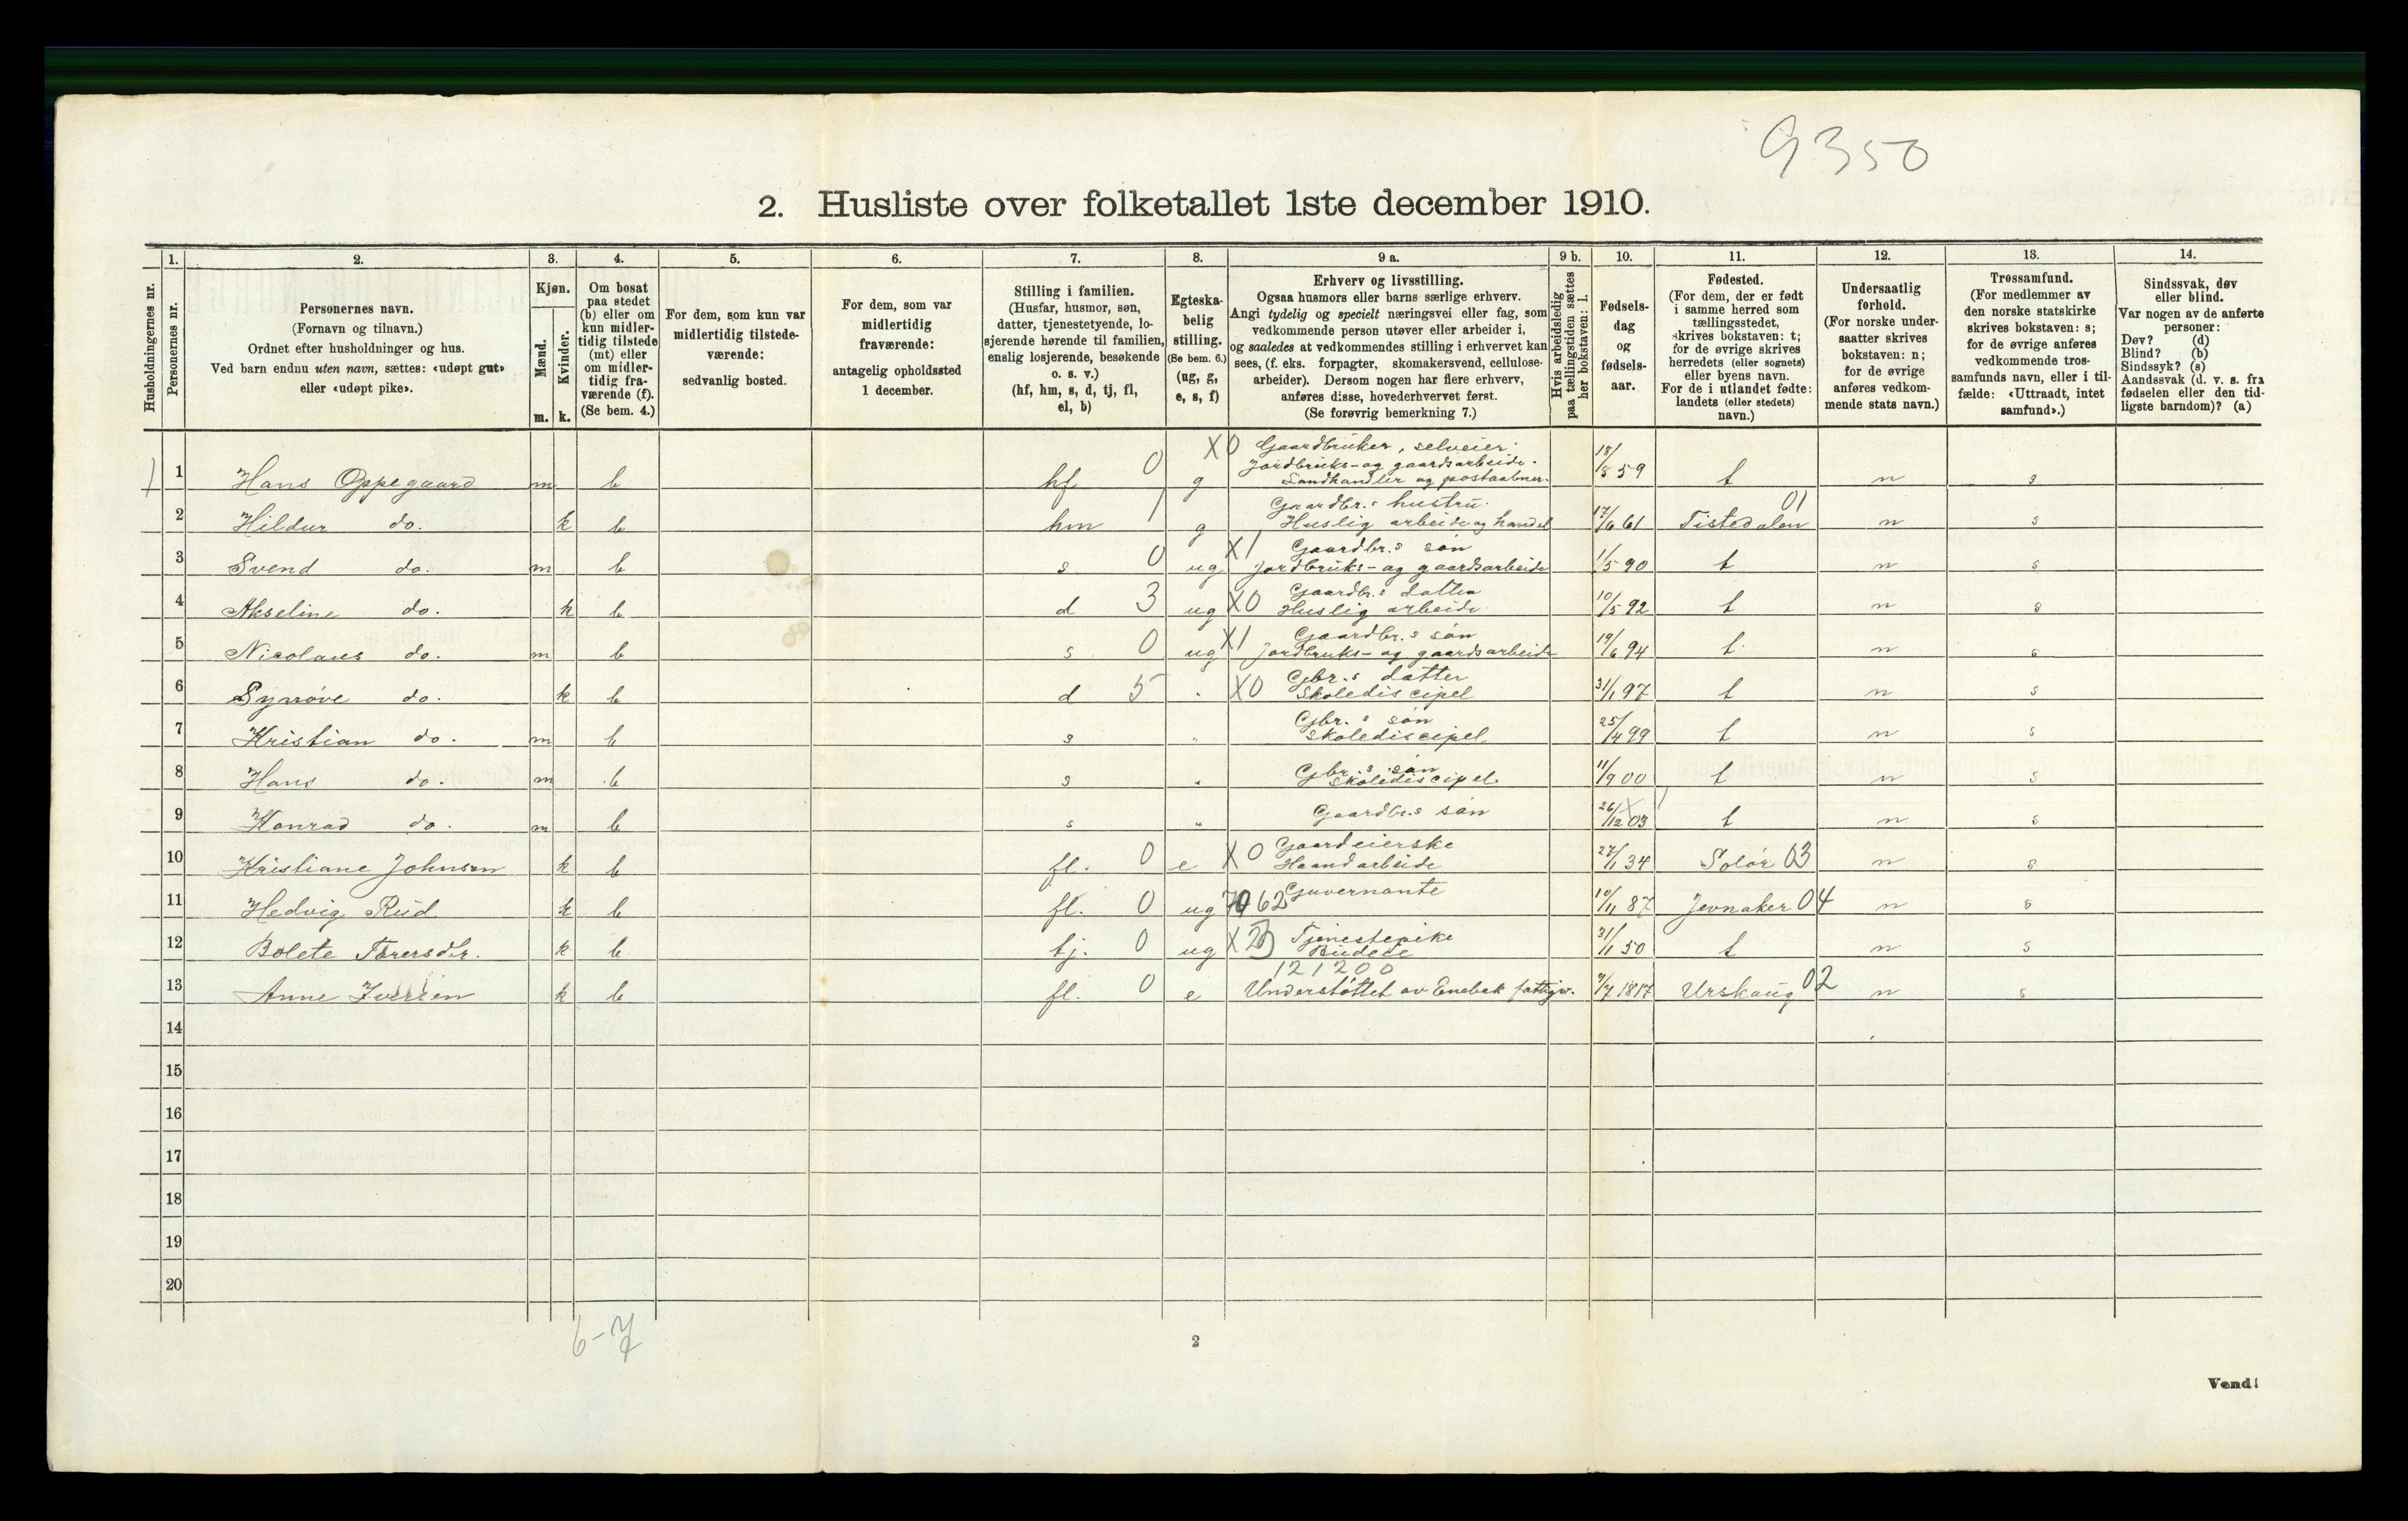 9350
2. Husliste over folketallet 1ste december 1910.
Husholdningernes nr.
1. Personernes nr.
2. Personernes navn.
(Fornavn og tilnavn.)
Ordnet efter husholdninger og hus.
Ved barn endnu uten navn, sættes: «udøpt gut»
eller «udøpt pike».
3. Kjøn.
Mænd. m.
Kvinder. k.
4. Om bosat
paa stedet
(b) eller om
kun midler-
tidig tilstede
(mt) eller
om midler-
tidig fra-
værende (f).
(Se bem. 4.)
5. For dem, som kun var
midlertidig tilstede-
værende:
sedvanlig bosted.
6. For dem, som var
midlertidig
fraværende:
antagelig opholdssted
1 december.
7. Stilling i familien.
(Husfar, husmor, søn,
datter, tjenestetyende, lo-
sjerende hørende til familien,
enslig losjerende, besøkende
o. s. v.)
(hf, hm, s, d, tj, fl,
el, b)
8. Egteska-
belig
stilling.
(Se bem. 6.)
(ug, g,
e, s, f)
9 a. Erhverv og livsstilling.
Ogsaa husmors eller barns særlige erhverv.
Angi tydelig og specielt næringsvei eller fag, som
vedkommende person utøver eller arbeider i,
og saaledes at vedkommendes stilling i erhvervet kan
sees, (f. eks. forpagter, skomakersvend, cellulose-
arbeider). Dersom nogen har flere erhverv,
anføres disse, hovederhvervet først.
(Se forøvrig bemerkning 7.)
9 b. Hvis arbeidsledig
paa tællingstiden sættes
her bokstaven: l.
10. Fødsels-
dag
og
fødsels-
aar.
11. Fødested.
(For dem, der er født
i samme herred som
tællingsstedet,
skrives bokstaven: t;
for de øvrige skrives
herredets (eller sognets)
eller byens navn.
For de i utlandet fødte:
landets (eller stedets)
navn.)
12. Undersaatlig
forhold.
(For norske under-
saatter skrives
bokstaven: n;
for de øvrige
anføres vedkom-
mende stats navn.)
13. Trossamfund.
(For medlemmer av
den norske statskirke
skrives bokstaven: s;
for de øvrige anføres
vedkommende tros-
samfunds navn, eller i til-
fælde: «Uttraadt, intet
samfund».)
14. Sindssvak, døv
eller blind.
Var nogen av de anførte
personer:
Døv? (d)
Blind? (b)
Sindssyk? (s)
Aandssvak (d. v. s. fra
fødselen eller den tid-
ligste barndom)? (a)
1 1 Hans Oppegaard m b hf 0 g X0 Gaardbruker, selveier. Jordbruks- og gaardsarbeide. Landhandler og postaabner. 18/8 59 t n s
2 Hildur do. k b hm 1 g Gaardbr.s hustru. Huslig arbeide og handel 17/6 61 Tistedalen 01 n s
3 Svend do. m b s 0 ug X1 Gaardbr.s søn Jordbruks- og gaardsarbeide 1/5 90 t n s
4 Akseline do. k b d 3 ug X0 Gaardbr.s datter Huslig arbeide 10/5 92 t n s
5 Nicolaus do. m b s 0 ug X1 Gaardbr.s søn Jordbruks- og gaardsarbeide 19/6 94 t n s
6 Synnøve do. k b d 5 " X0 Gbr.s datter Skolediscipel 31/1 97 t n s
7 Kristian do. m b s " Gbr.s søn Skolediscipel 25/4 99 t n s
8 Hans do. m b s " Gbr.s søn Skolediscipel 11/9 00 t n s
9 Konrad do. m b s " Gaardbr.s søn 26/12 03 t n s
10 Kristiane Johnsen k b fl. 0 e X0 Gaardeierske Haandarbeide 27/1 34 Solør 03 n s
11 Hedvig Rud k b fl. 0 ug 62 Guvernante 10/11 87 Jevnaker 04 n s
12 Bolete Torersdtr. k b tj. 0 ug X Tjenestepike Budeie 31/1 50 t n s
13 Anne Iversen k b fl. 0 e 121200 Understøttet av Enebak fattigv. 7/7 1817 Urskaug 02 n s
14
15
16
17
18
19
20
6-7
2
Vend!